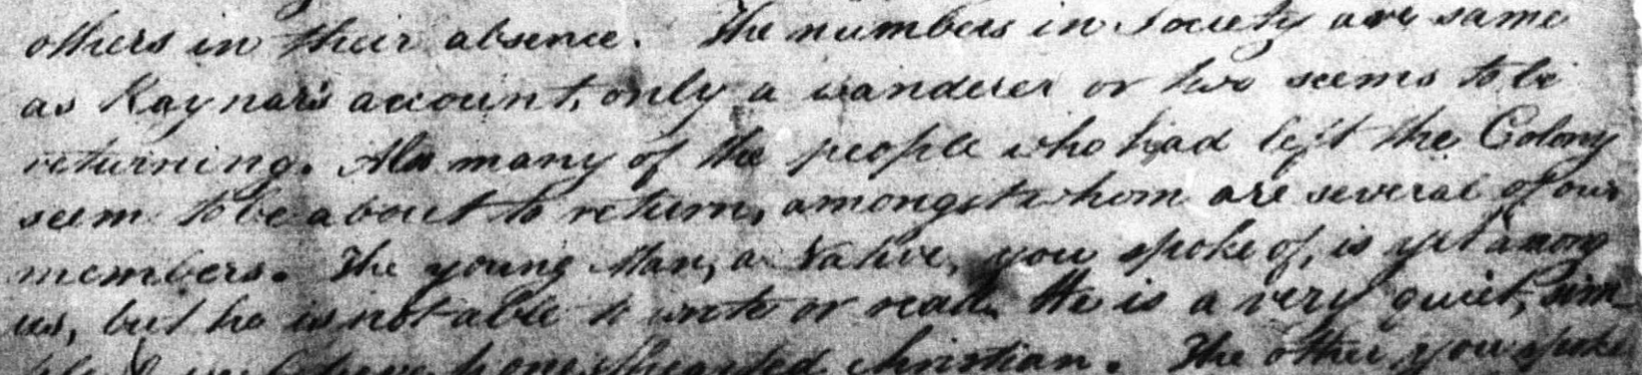 others in their absence. The numbers in Society are same
as Raynar's account, only a wanderer or two seems to be
returning. Also many of the people who had left the Colony
seem to be about to return, amongst whom are several of our
members. The young Man, a Native, you spoke of, is yet among
us, but he is not able to write or read. He is a very quiet, sim-
ple hearted Christian. The other, you spoke